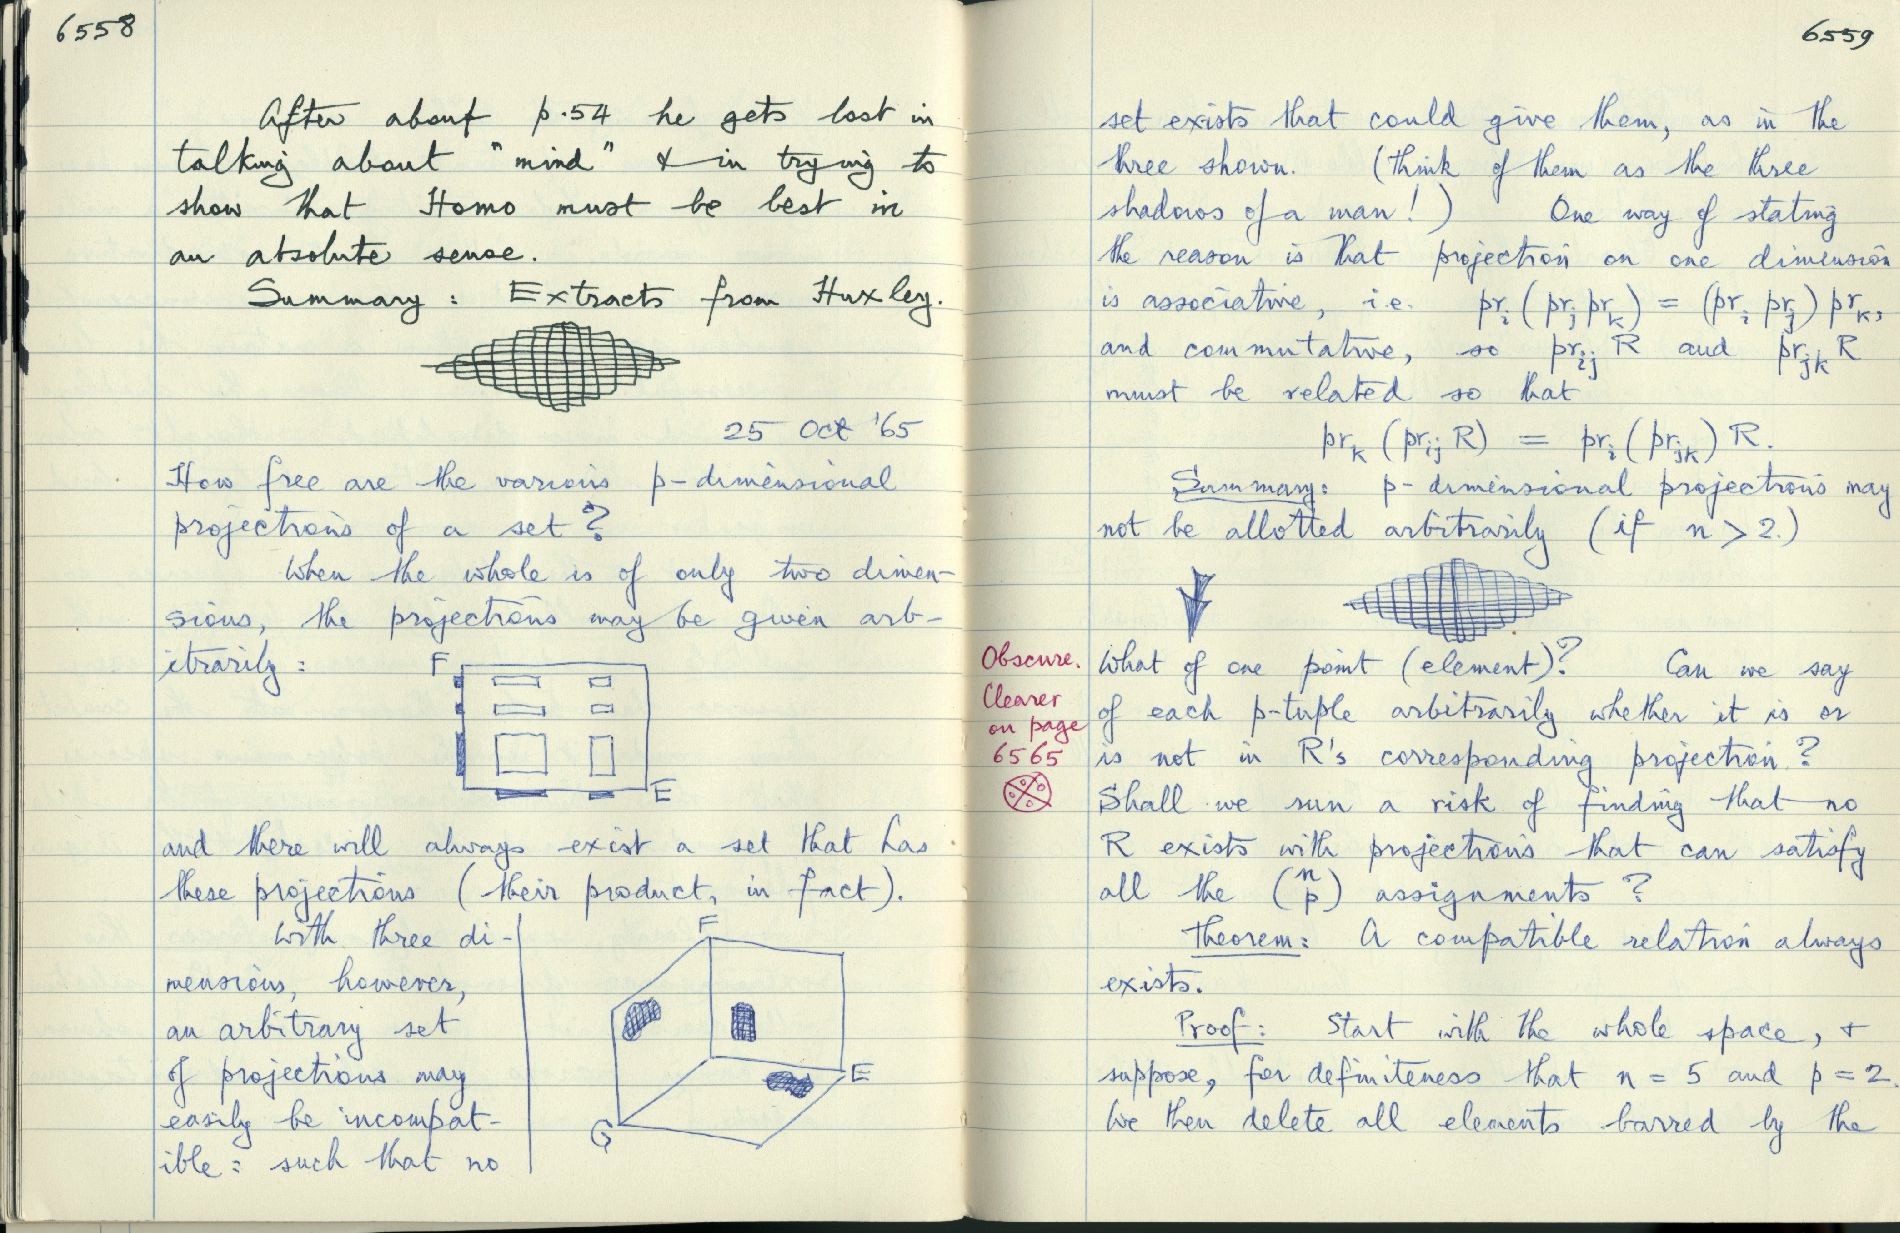 6558
After about p.54 he gets lost in
talking about "mind" & in trying to
show that Homo must be best in
an absolute sense.
Summary: Extracts from Huxley.
25 Oct '65
How free are the various p-dimensional
projections of a set?
When the whole is of only two dimen-
sions, the projections may be given arb-
itrarily:
F
E
and there will always exist a set that has
these projections (their product, in fact).
With three di-
mensions, however,
an arbitrary set
of projections may
easily be incompat-
ible: such that no
F
E
G
6559
set exists that could give them, as in the
three shown. (Think of them as the three
shadows of a man!) One way of stating
the reason is that projection on one dimension
is associative, i.e. prᵢ(prⱼ prₖ) = (prᵢ prⱼ) prₖ,
and commutative, so prᵢⱼ R and prⱼₖ R
must be related so that
prₖ (prᵢⱼ R) = prᵢ (prⱼₖ) R.
Summary: p-dimensional projections may
not be allotted arbitrarily (if n > 2.)
Obscure.
Clearer
on page
6565
What of one point (element)? Can we say
of each p-tuple arbitrarily whether it is or
is not in R's corresponding projection?
Shall we run a risk of finding that no
R exists with projections that can satisfy
all the (n p) assignments?
Theorem: A compatible relation always
exists.
Proof: Start with the whole space, &
suppose, for definiteness that n = 5 and p = 2.
We then delete all elements barred by the